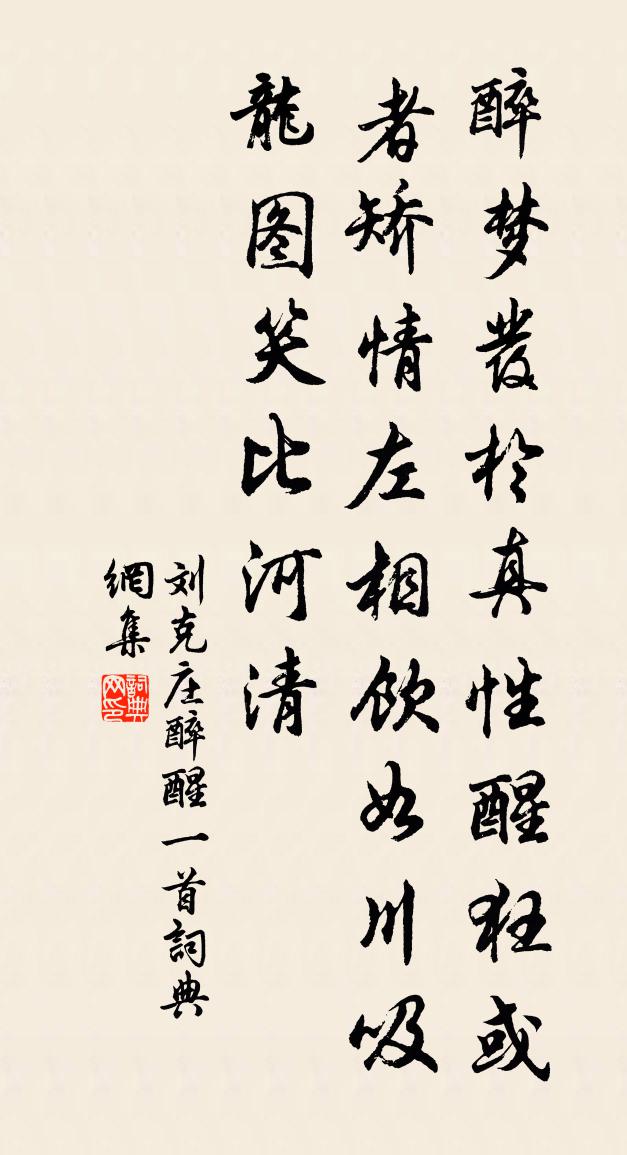 醉梦發於真性醒狂或
者矫情左相飲如川吸
龍图笑比河清
刘克庄醉醒一首詞典
網集
詞典网印